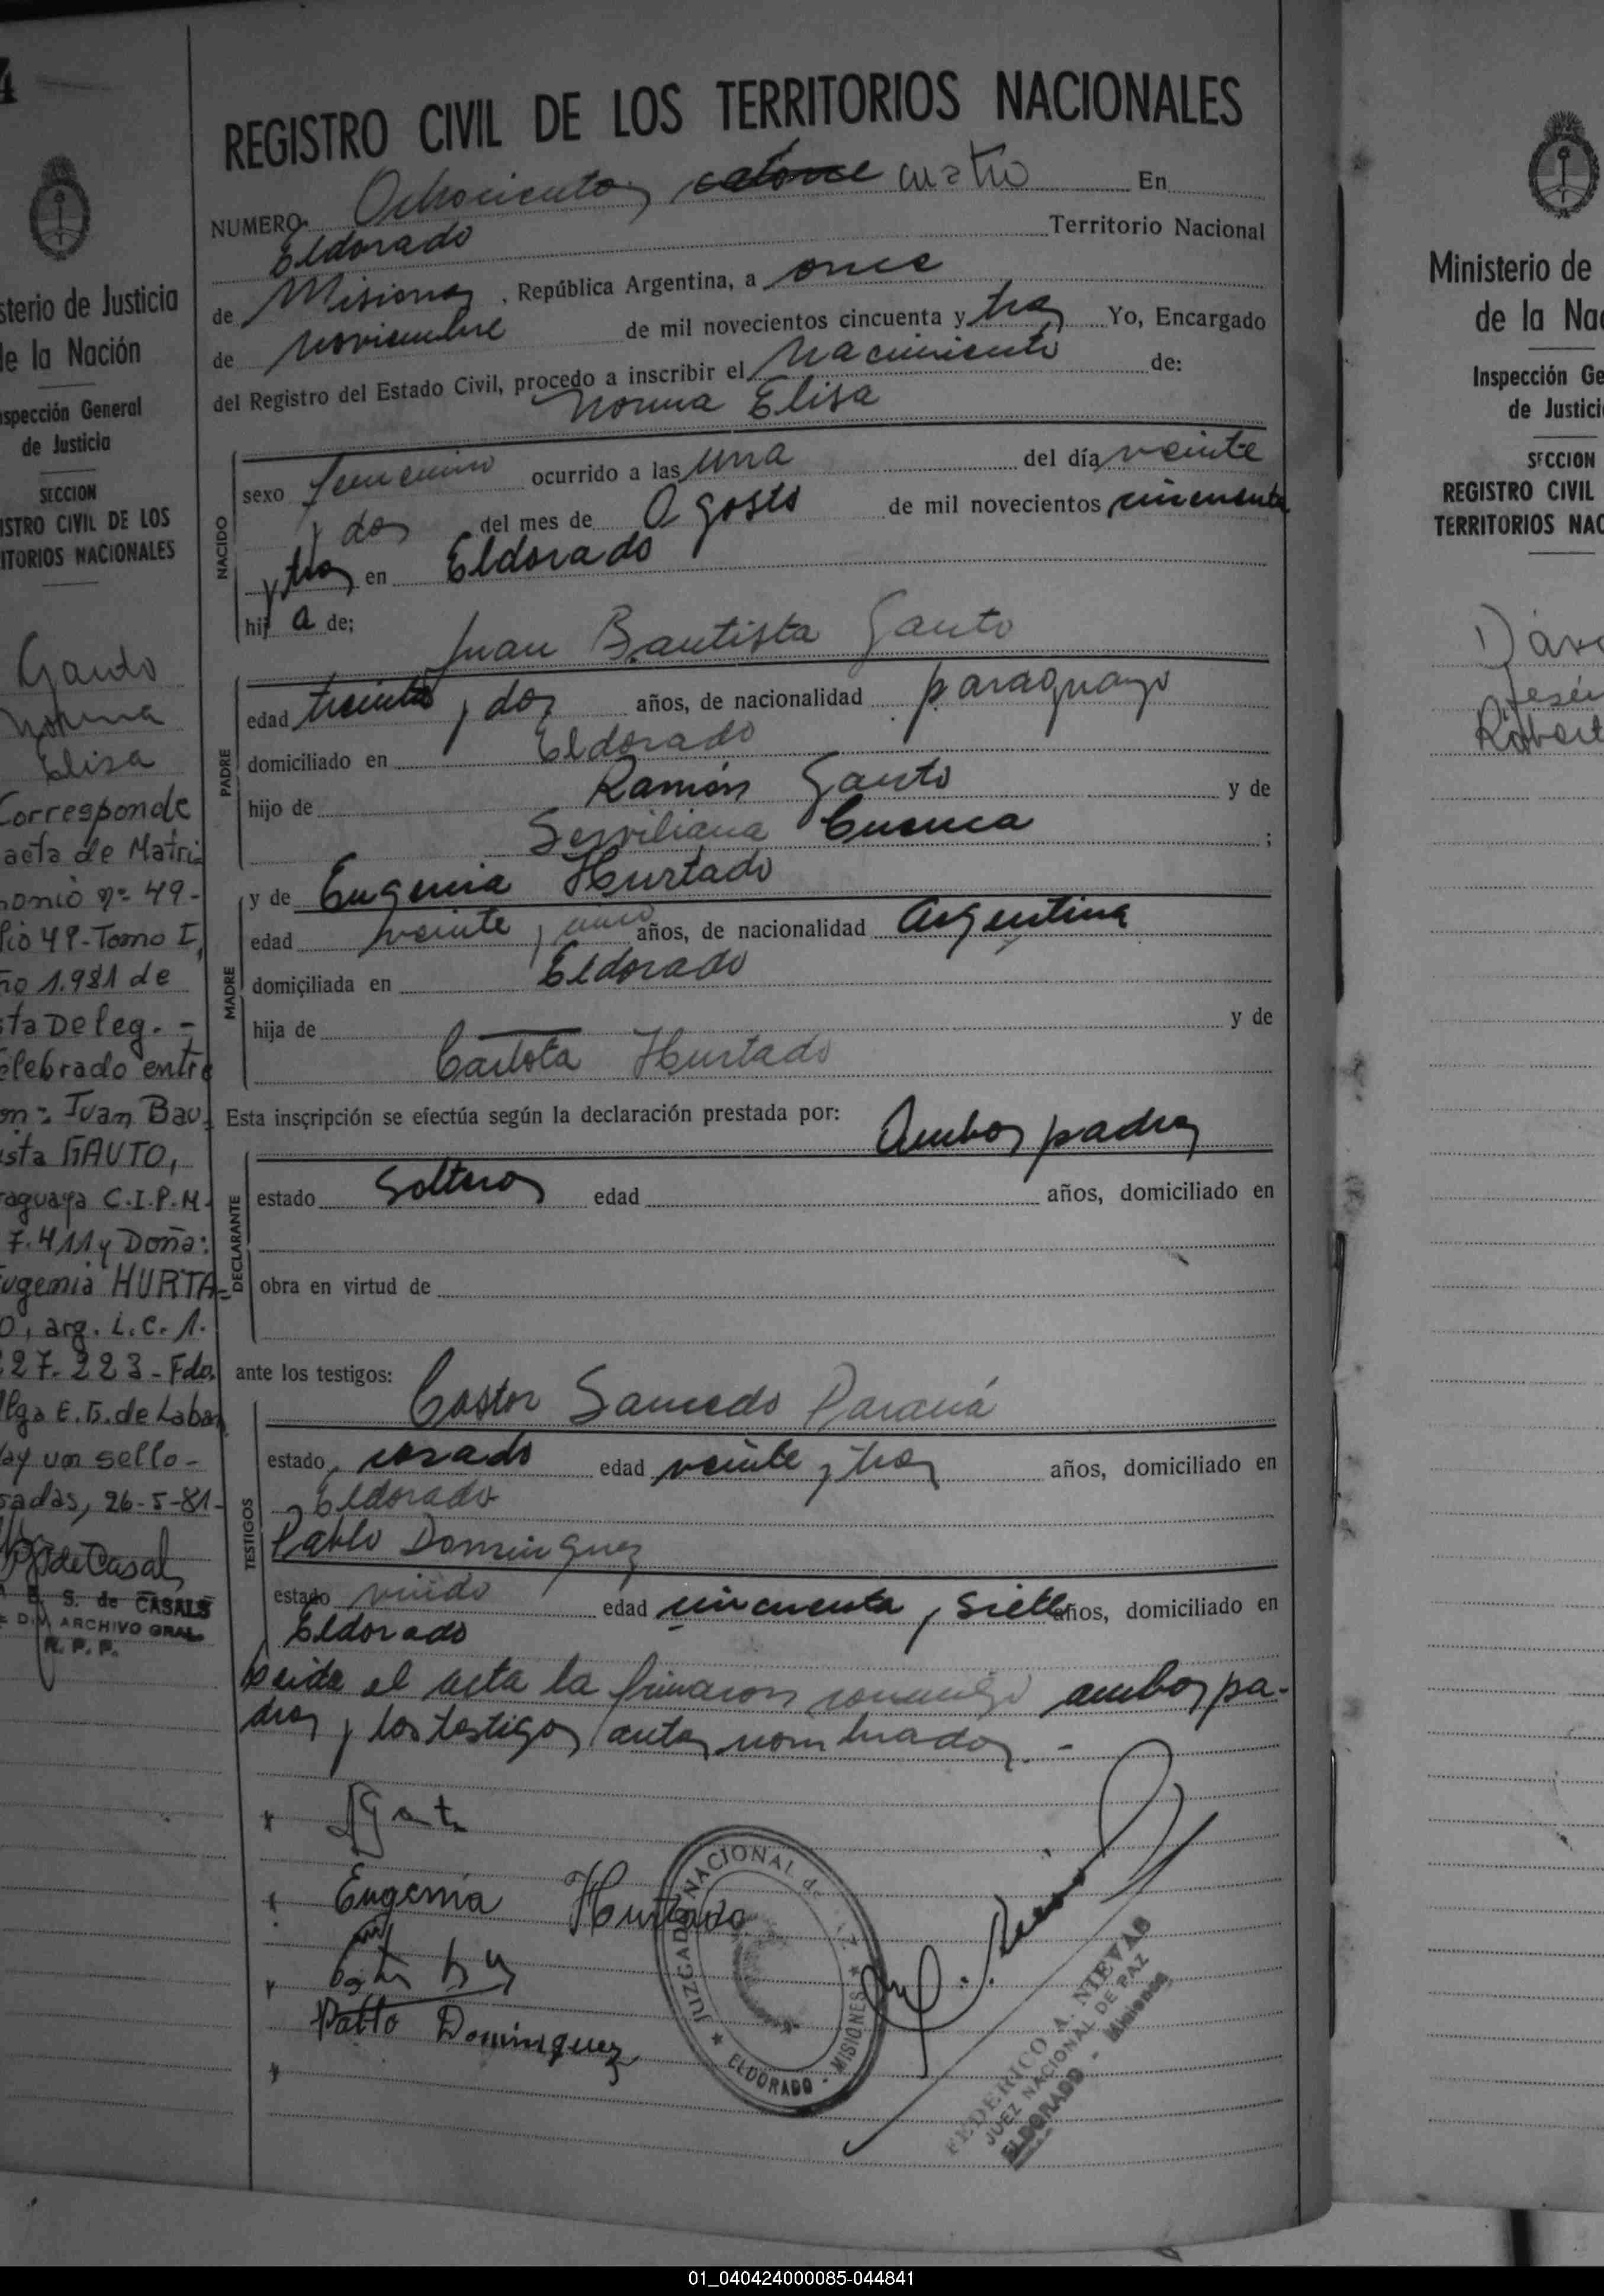 4
sterio de Justicia
de la Nación
nspección General
de Justicia
SECCION
ISTRO CIVIL DE LOS
ITORIOS NACIONALES
Gauto
Norma
Elisa
Corresponde
acta de Matri
monio nº 49-
lio 49-Tomo I,
ño 1.981 de
sta Deleg. -
elebrado entre
on: Juan Bau
ista GAUTO,
raguaya C.I.P.M.
7.411 y Doña:
Eugenia HURTA-
O, arg. L.C. 1.
227.223 - Fdo.
lga E. B. de Laba
ay un sello -
sadas, 26-5-81-
S. de CASALS
DIV. ARCHIVO GRAL.
R. P. P.
REGISTRO CIVIL DE LOS TERRITORIOS NACIONALES
NUMERO Ochocientos catorce cuatro En
Eldorado Territorio Nacional
de Misiones, República Argentina, a once
de noviembre de mil novecientos cincuenta y tres Yo, Encargado
del Registro del Estado Civil, procedo a inscribir el Nacimiento de:
Norma Elisa
NACIDO
sexo femenino ocurrido a las una del día veinte
y dos del mes de Agosto de mil novecientos cincuenta
y tres en Eldorado
hij a de;
Juan Bautista Gauto
PADRE
edad treinta y dos años, de nacionalidad paraguayo
domiciliado en Eldorado
hijo de Ramón Gauto y de
Serviliana Cuenca ;
MADRE
y de Eugenia Hurtado
edad veinte y años, de nacionalidad Argentina
domiciliada en Eldorado
hija de y de
Carlota Hurtado
Esta inscripción se efectúa según la declaración prestada por: Ambos padres
DECLARANTE
estado Solteros edad años, domiciliado en
obra en virtud de
ante los testigos:
Castor Saucedo Paraná
TESTIGOS
estado casado edad veinte y tres años, domiciliado en
Eldorado
Pablo Dominguez
estado viudo edad cincuenta y siete años, domiciliado en
Eldorado
Leida el acta la firmaron conmigo ambos pa-
dres y los testigos antes nombrados. -
Eugenia Hurtado
Pablo Dominguez
JUZGADO NACIONAL de
ELDORADO - MISIONES
FEDERICO A. NIEVAS
JUEZ NACIONAL DE PAZ
ELDORADO - Misiones
Ministerio de
de la Nac
Inspección Ge
de Justici
SECCION
REGISTRO CIVIL
TERRITORIOS NAC
Robert
01_040424000085-044841